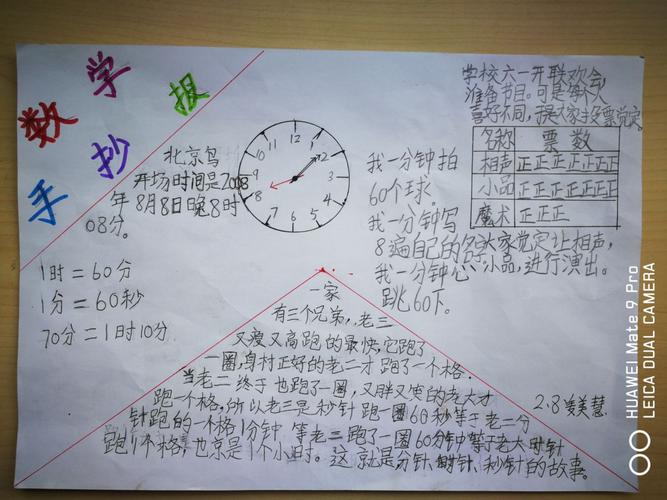 数学
手抄报
北京鸟
开场时间是2008
年8月8日晚8时
08分。
12
1
2
3
4
5
6
7
8
9
10
11
我一分钟拍
60个球。
我一分钟写
8遍自己的名
我一分钟心
跳60下。
学校六一开联欢会,
准备节目。可是每个人
喜好不同,
名称 票数
相声 正正正正正正正
小品 正正正正正正正
魔术 正正正
大家觉定让相声,
小品,进行演出。
1时=60分
1分=60秒
70分=1时10分
一家
有三个兄弟,老三
又瘦又高跑的最快,它跑了
一圈,身村正好的老二才跑了一个格.
当老二终于也跑了一圈,又胖又矮的老大才
跑一个格,所以老三是秒针跑一圈60秒等于老二分
针跑的一个格1分钟,等老二跑了一圈60分钟等于老大时针
跑1个格,也京是1个小时。这就是分针、时针、秒针的故事。
2.8 美慧
HUAWEI Mate 9 Pro
LEICA DUAL CAMERA